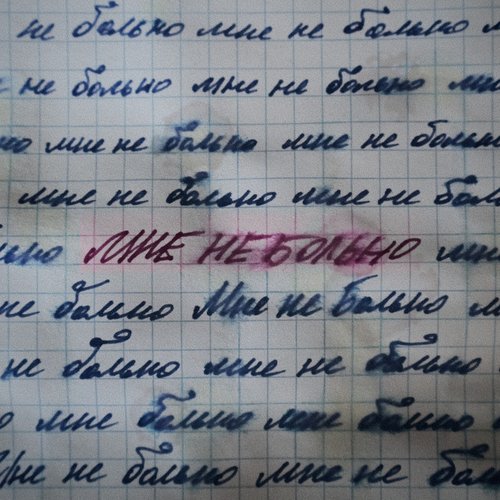 не больно мне не больно м
не больно мне не больно мне
но мне не больно мне не больн
мне не больно мне не боль
льно МНЕ НЕ БОЛЬНО мне
не больно Мне не больно м
не больно мне не больно
о мне больно мне больно
Мне не больно мне не бол